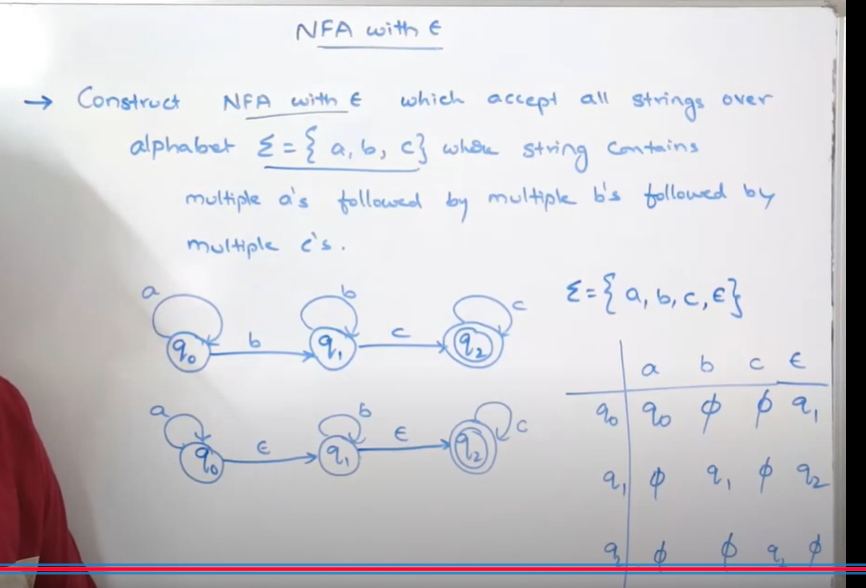 NFA with ϵ
→ Construct NFA with ϵ which accept all strings over
alphabet Σ = { a, b, c} where string contains
multiple a's followed by multiple b's followed by
multiple c's.
a b c
q₀ b q₁ c q₂
a b c
q₀ ϵ q₁ ϵ q₂
Σ = { a, b, c, ϵ}
a b c ϵ
q₀ q₀ ϕ ϕ q₁
q₁ ϕ q₁ ϕ q₂
q₂ ϕ ϕ q₂ ϕ